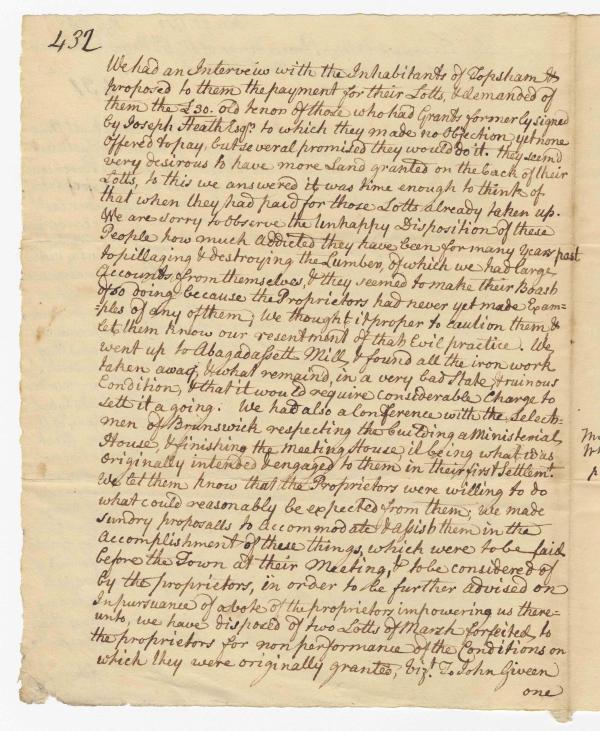 432
We had an Interveiw with the Inhabitants of Topsham &
proposed to them the payment for their Lotts, & demanded of
them the £30. old tenor of those who had Grants formerly signed
by Joseph Heath Esqr. to which they made no objection, yet none
offered to pay, but several promised they would do it. they seemd
very desirous to have more Land granted on the back of their
Lotts, to this we answered it was time enough to think of
that when they had paid for those Lotts already taken up.
We are sorry to observe the Unhappy Disposition of these
People how much addicted they have been for many Years past
to pillaging & destroying the Lumber, of which we had large
Accounts, from themselves, & they seemed to make their Boast
of so doing because the Proprietors had never yet made Exam=
=ples of any of them; We thought it proper to caution them &
let them know our resentment of that Evil practice. We
went up to Abagadassett Mill, & found all the iron work
taken away, & what remaind, in a very bad State & ruinous
Condition, & that it would require considerable Charge to
sett it a going: We had also a Conference with the Select-
men of Brunswick respecting the building a Ministerial
House, & finishing the Meeting House, it being what was
Originally intended & engaged to them in their first Settlemt.
We let them know that the Proprietors were willing to do
what could reasonably be expected from them; We made
sundry proposalls to accommodate & assist them in the
Accomplishment of these things, which were to be laid
before the Town at their Meeting, & to be considered of
by the proprietors, in order to be further advised on
In pursuance of a vote of the proprietors impowering us there=
unto, we have disposed of two Lotts of Marsh forfeited to
the proprietors for non performance of the Conditions on
which they were originally granted, Vizt. To John Gween
one